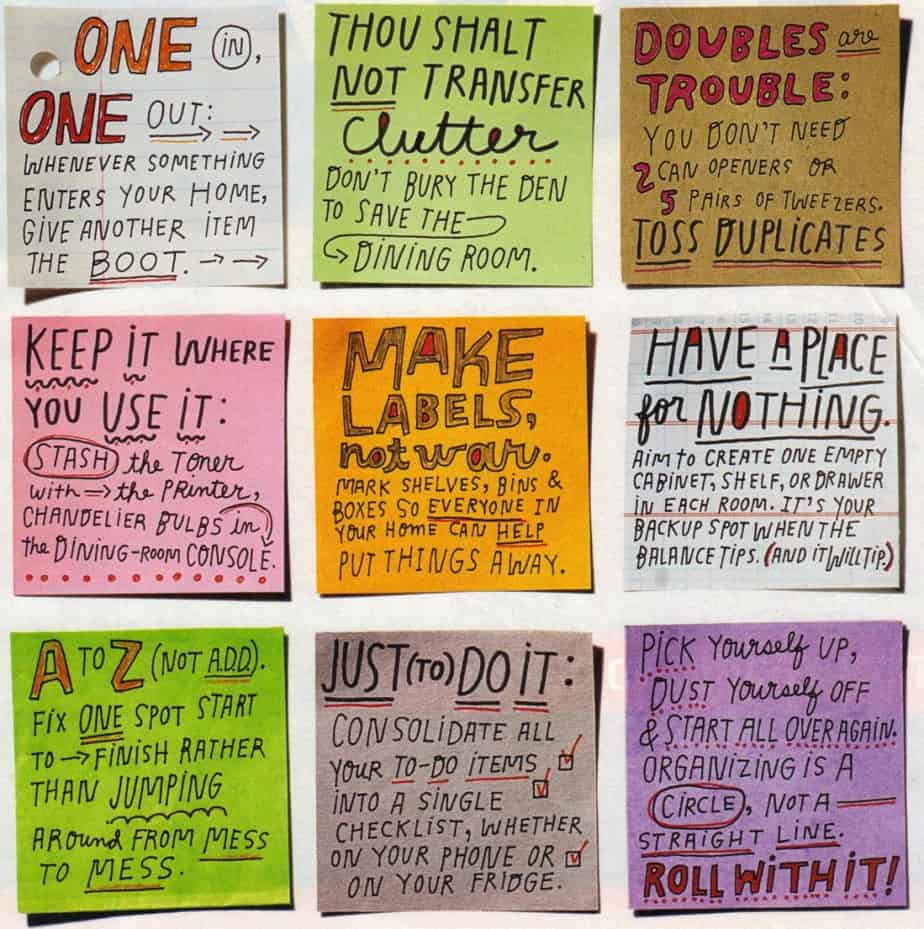 ONE in,
ONE OUT:
WHENEVER SOMETHING
ENTERS YOUR HOME,
GIVE ANOTHER ITEM
THE BOOT.
THOU SHALT
NOT TRANSFER
Clutter
DON'T BURY THE DEN
TO SAVE THE
DINING ROOM.
DOUBLES are
TROUBLE:
YOU DON'T NEED
2 CAN OPENERS OR
5 PAIRS OF TWEEZERS.
TOSS DUPLICATES
KEEP iT WHERE
YOU USE iT:
STASH the TONER
with → the PRINTER,
CHANDELIER BULBS in
the DINING-ROOM CONSOLE.
MAKE
LABELS,
not war.
MARK SHELVES, BINS &
BOXES SO EVERYONE IN
YOUR HOME CAN HELP
PUT THINGS AWAY.
HAVE A PLACE
for NOTHING.
AIM to CREATE ONE EMPTY
CABINET, SHELF, OR DRAWER
IN EACH ROOM. IT'S YOUR
BACKUP SPOT WHEN THE
BALANCE TIPS. (AND iT WILL TIP.)
A TO Z (NOT A.D.D.).
FIX ONE SPOT START
TO → FINISH RATHER
THAN JUMPING
AROUND FROM MESS
TO MESS.
JUST (TO) DO iT:
CONSOLIDATE ALL
YOUR TO-DO ITEMS
INTO A SINGLE
CHECKLIST, WHETHER
ON YOUR PHONE OR
ON YOUR FRIDGE.
PICK Yourself UP,
DUST Yourself OFF
& START ALL OVER AGAIN.
ORGANIZING IS A
CIRCLE, NOT A
STRAIGHT LINE.
ROLL WITH iT!